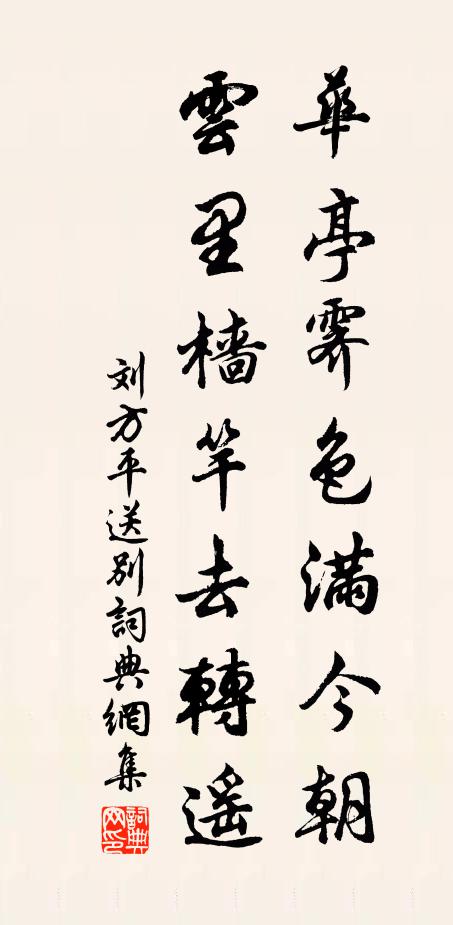 華亭霽色滿今朝
雲里檣竿去轉遥
刘方平送别詞典網集
詞典網印